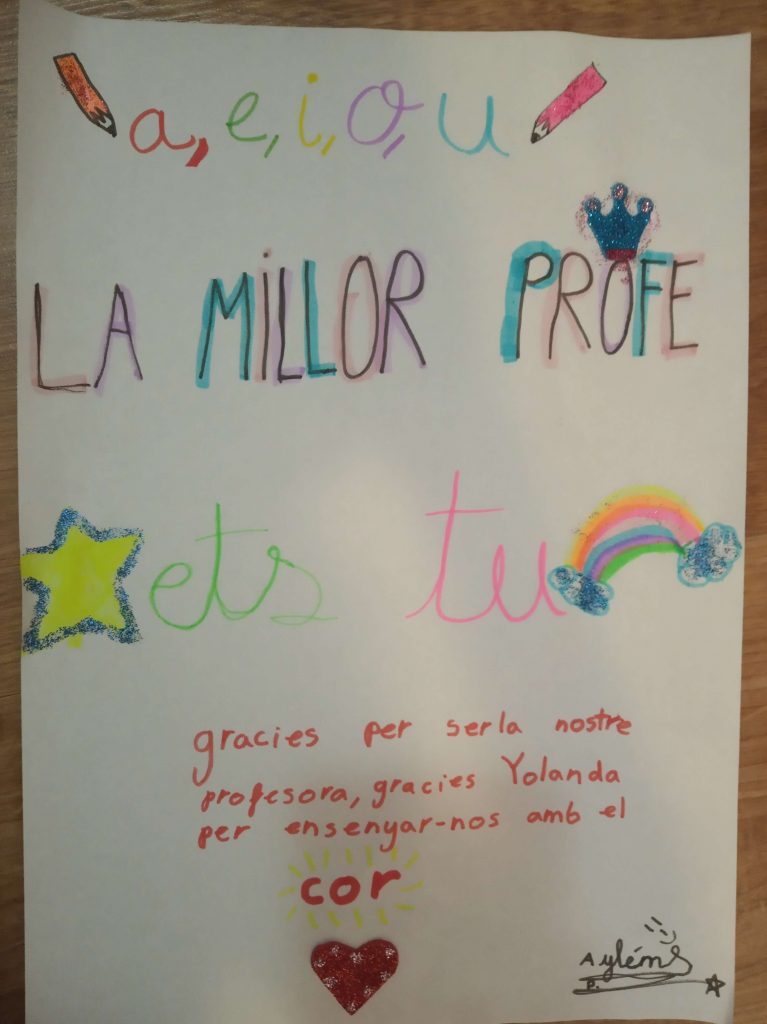 a, e, i, o, u
LA MiLLOR PROFE
ets tu
gracies per ser la nostre
profesora, gracies Yolanda
per ensenyar-nos amb el
cor
P.